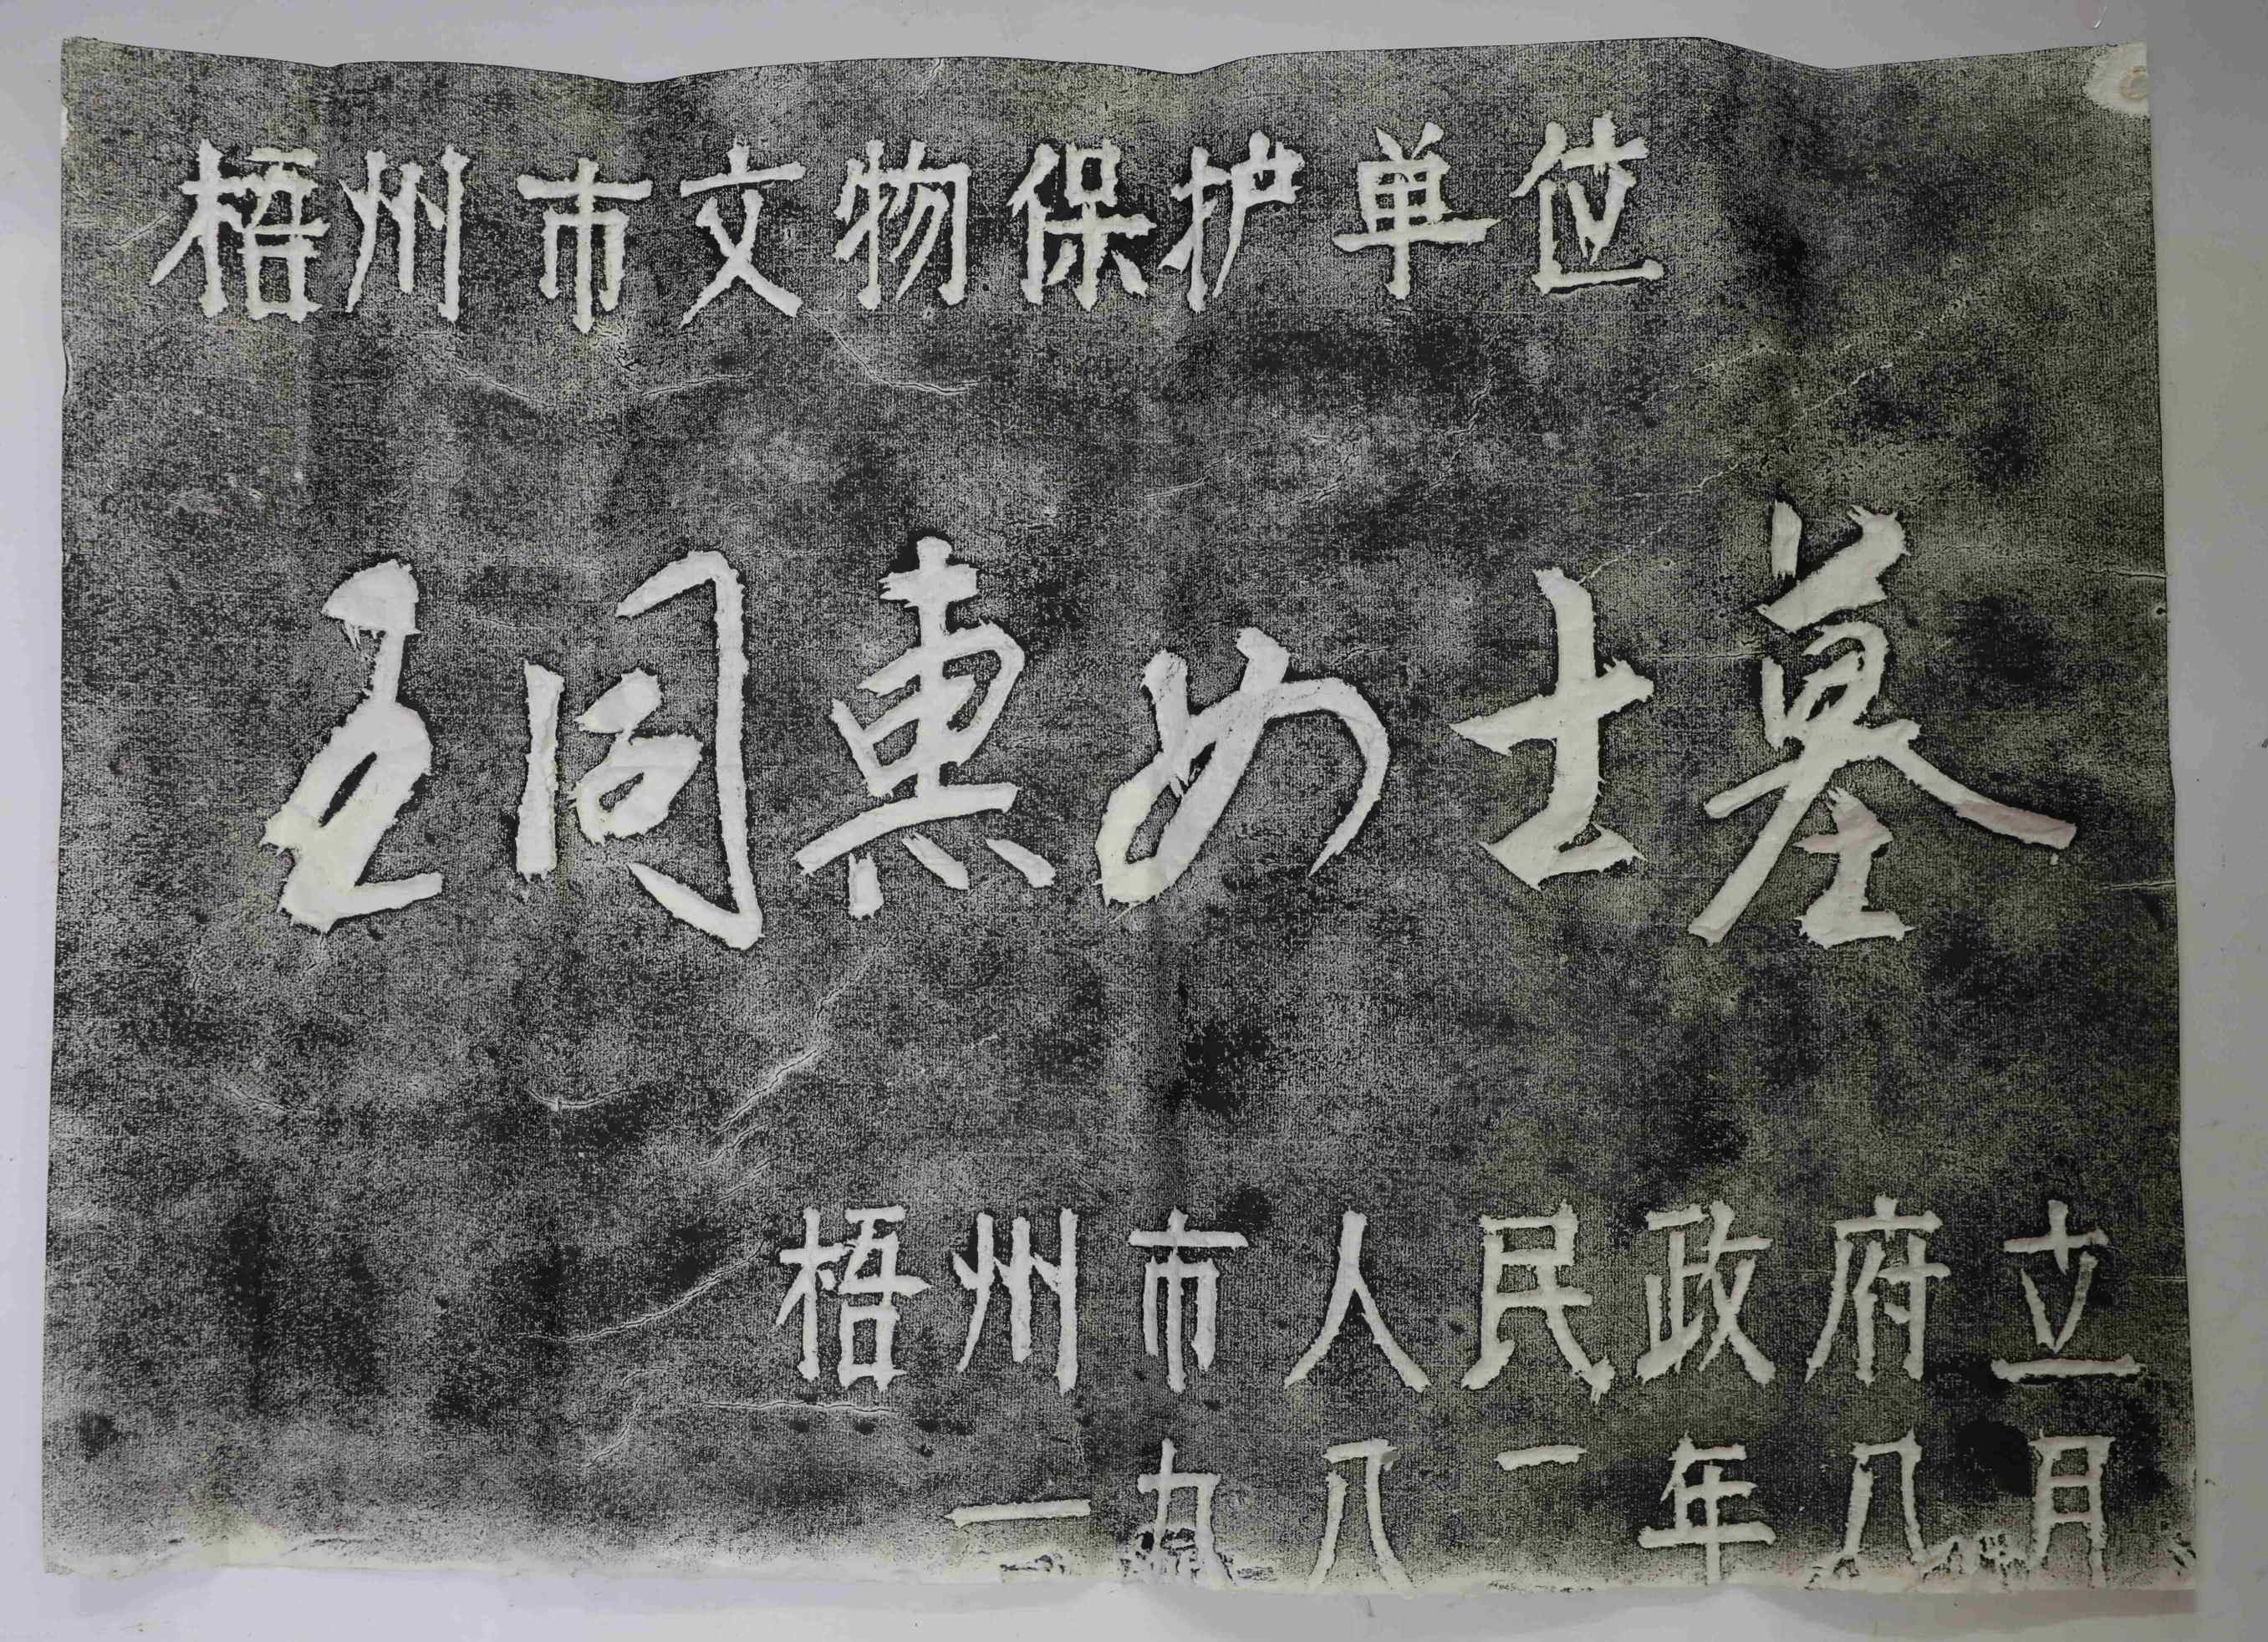 梧州市文物保护单位
王同惠女士墓
梧州市人民政府立
一九八二年八月